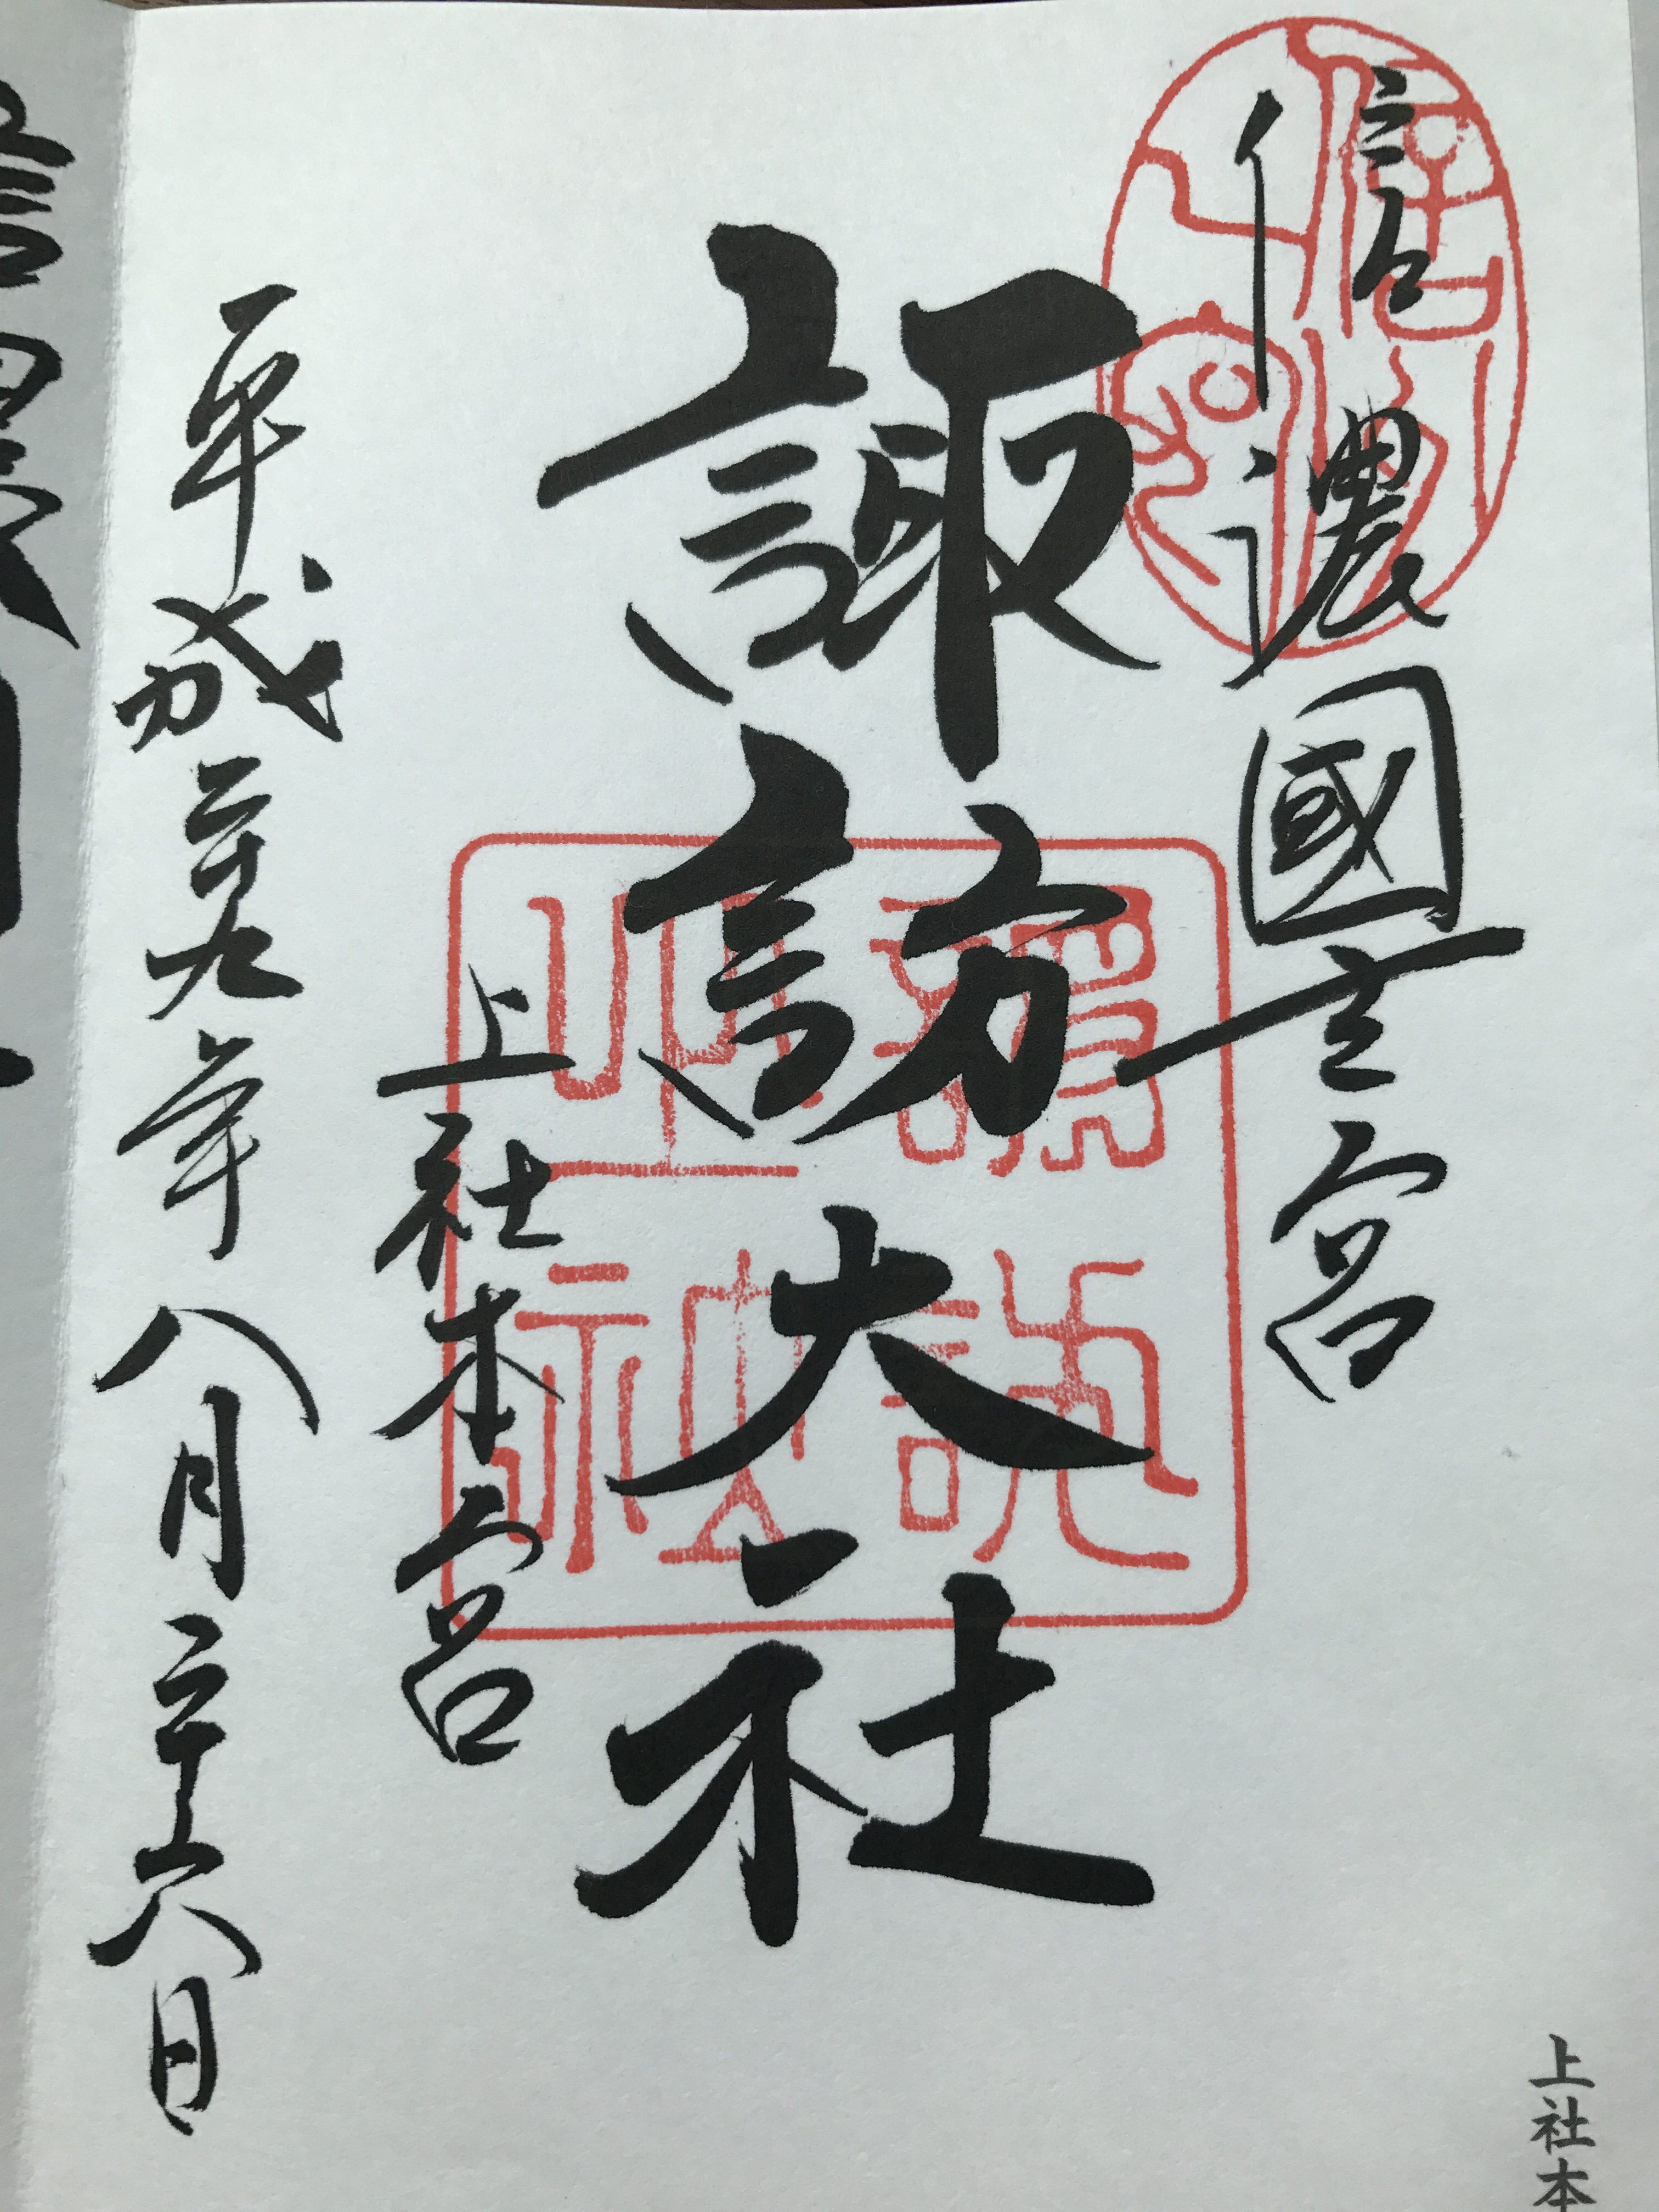 信濃國一之宮
諏訪大社
上社本宮
平成二十九年八月二十六日
上社本